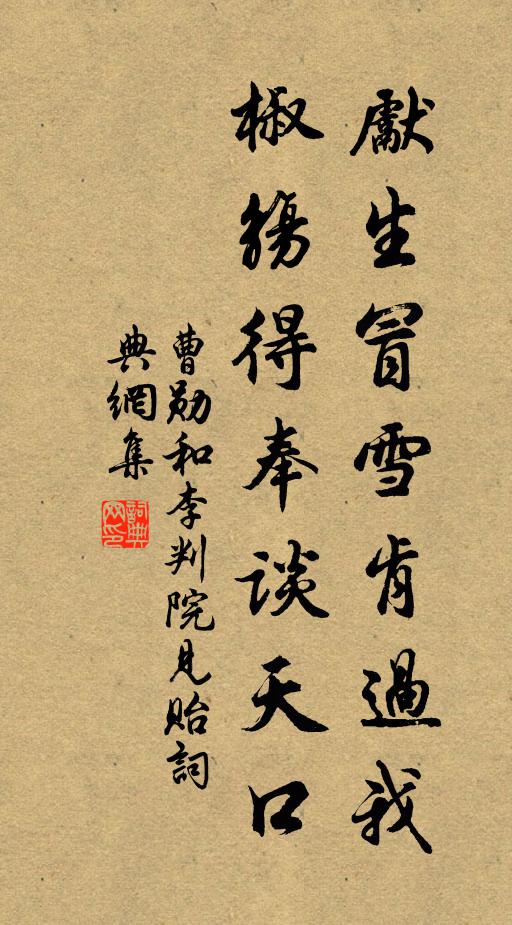 獻生冒雪肯過我
椒觴得奉談天口
曹勛和李判院見貽詞
典網集
詞典網印